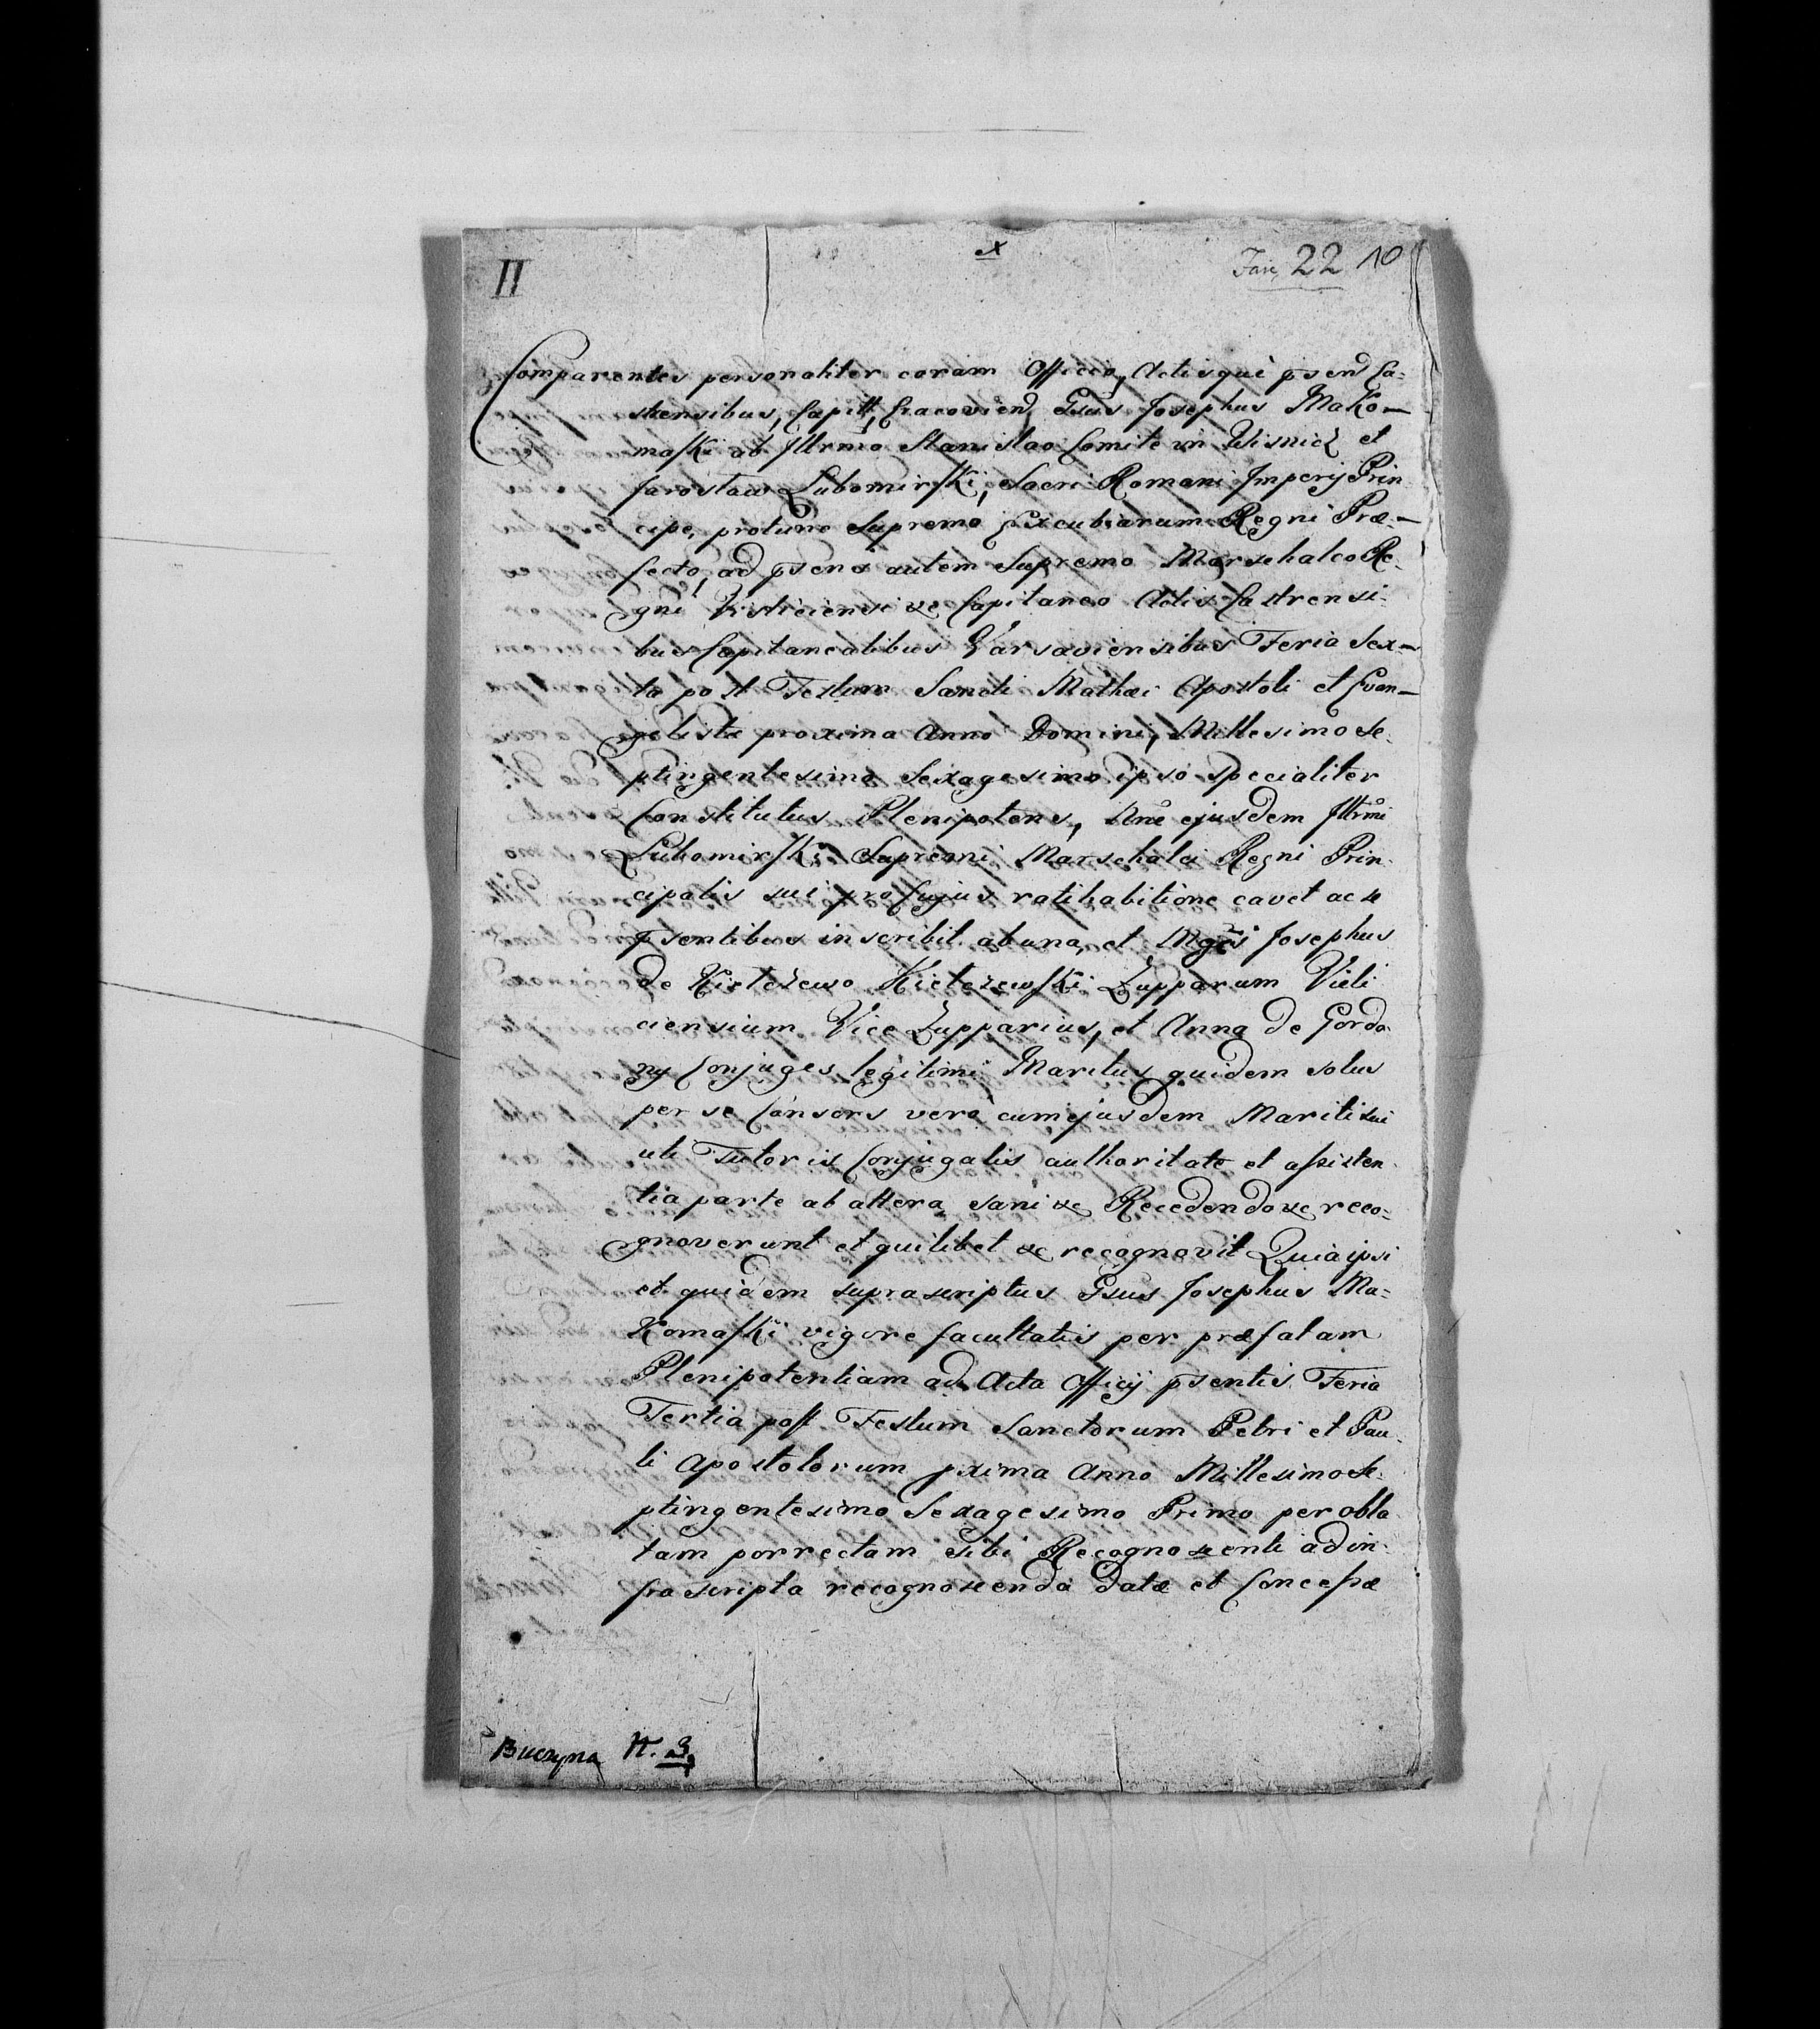 II
x
Fasc. 22 10
Comparentes personaliter coram Officio, Actisquè psend Ca-
strensibus, Capitt, Cracoviend Gsus Josephus Mako-
maski ab Illrmo Stanislao Comite in Wisnicz et
Jarosław Lubomirski, Sacri Romani Imperij Prin-
cipe, protunc Supremo Excubiarum Regni Præ-
fecto, ad psens autem Supremo Marschalco Re-
gni Visliciensi &c Capitaneo Actis Castrensi-
bus Capitanealibus Varsaviensibus Feria Sex-
ta post Festum Sancti Mathæi Apostoli et Evan-
gelistæ proxima Anno Domini, Millesimo Se-
ptingentesimo Sexagesimo ipso specialiter
Constitutus Plenipotens, Nne ejusdem Illrmi
Lubomirski Supremi Marschalci Regni Prin-
cipalis sui pro Cujus ratihabitione cavet ac se
psentibus inscribit ab una, et Mgci Josephus
de Kiełczewo Kiełczewski Zupparum Vieli
ciensium Vice Zupparius, et Anna de Gordo
ny Conjuges legitimi Maritus quidem solus
per se Consors verò cum ejusdem Mariti sui
uti Tutoris Conjugalis authoritate et assisten-
tia parte ab altera, sani &c Recedendo &c reco-
gnoverunt et quilibet &c recognovit Quia ipsi
et quidem suprascriptus Gsus Josephus Ma-
Komaski vigore facultatis per præfatam
Plenipotentiam ad Acta Officij psentis Feria
Tertia post Festum Sanctorum Petri et Pau-
li Apostolorum pxima Anno Millesimo Se-
ptingentesimo Sexagesimo Primo per obla
tam porrectam sibi Recognoscenti ad in-
frascripta recognoscenda datæ et Concessæ
Buczyna N. 3